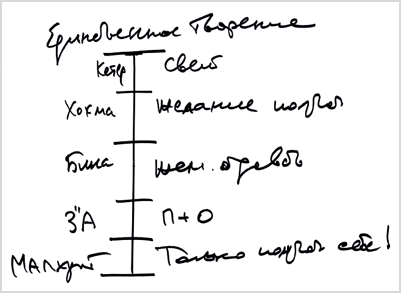 Единственное творение
Кетер Свет
Хохма желание получ
Бина жел. отдавать
З"А П + О
Малхут Только получ себе!